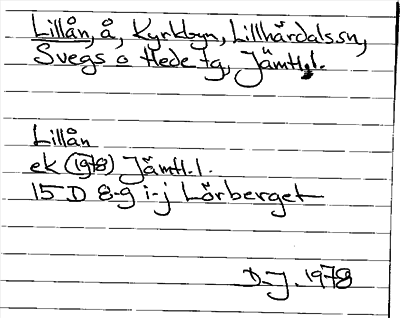 Lillån, å, Kyrkbyn, Lillhärdals sn,
Svegs o Hede tg, Jämtl.l.
Lillån
ek (1978) Jämtl.l.
15 D 8-g i-j Lörberget
D-J. 1978